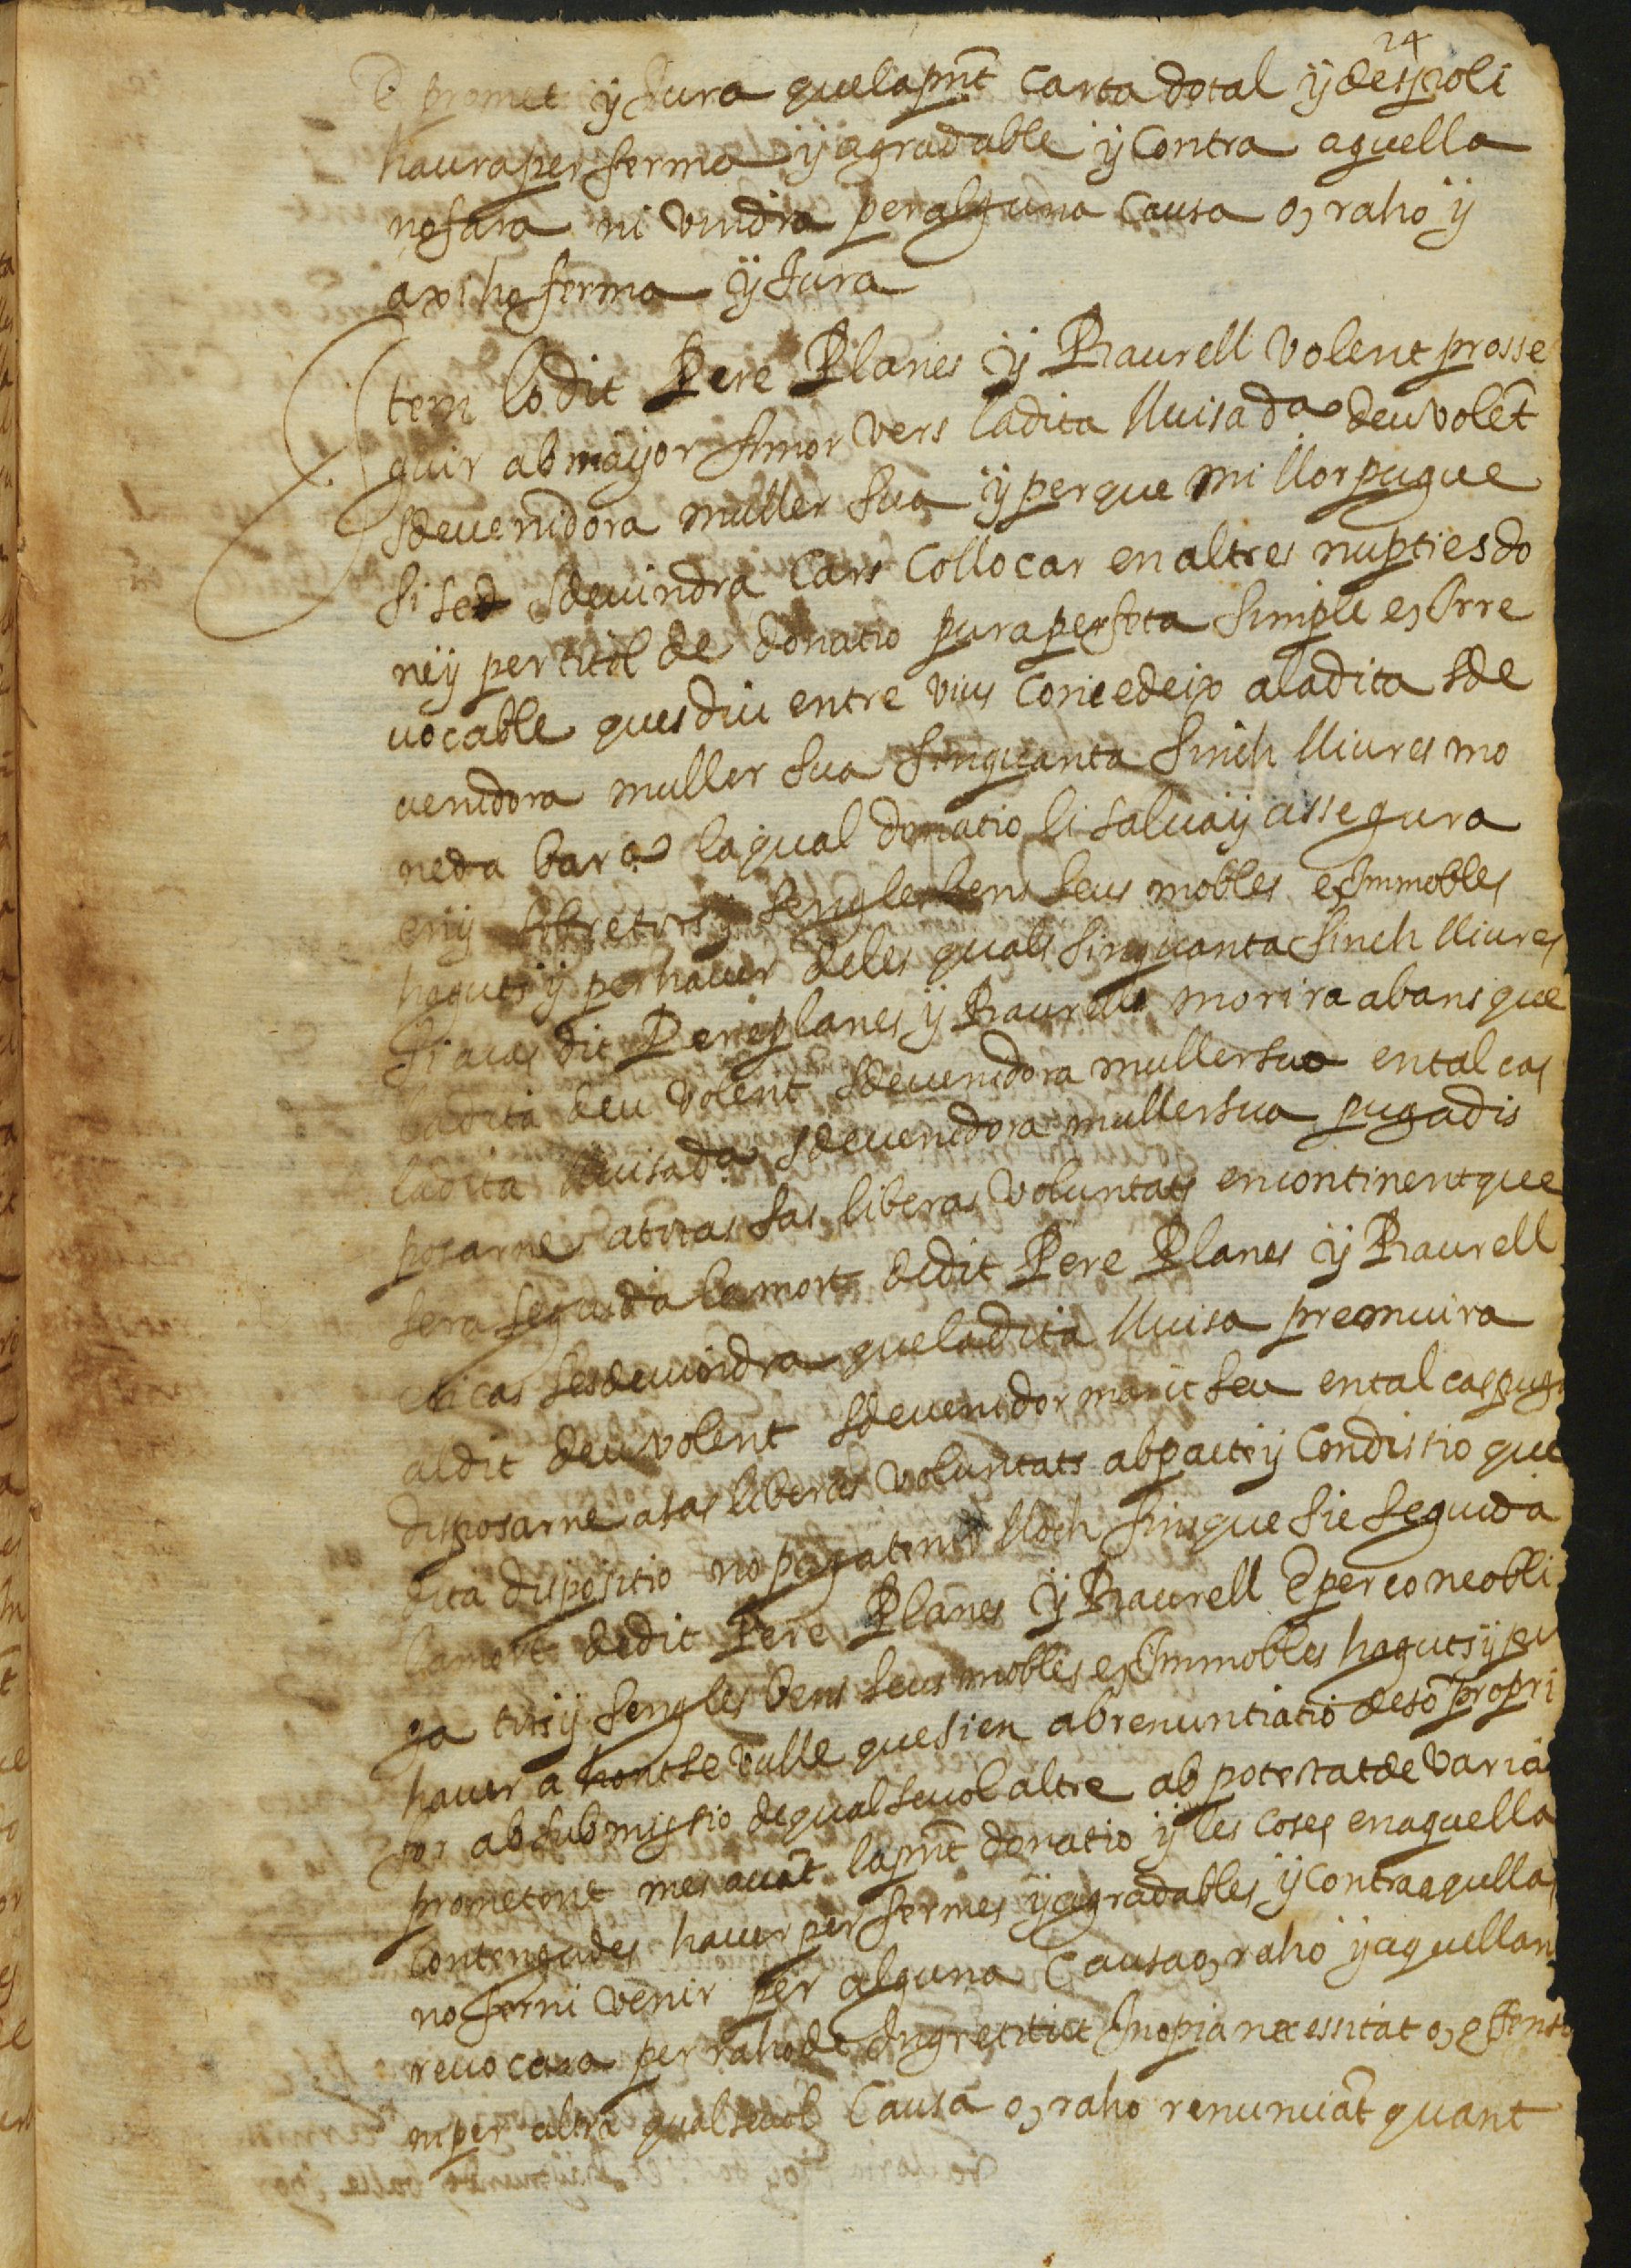 24
E promet ÿ Jura que la pn̄t carta dotal ÿ despoli
haura per ferma ÿ agradable ÿ contra aquella
no fara ni vindra per alguna causa o, raho ÿ
axi ho ferma ÿ Jura
Item lo dit Pere Planes ÿ Raurell volent prosse
guir ab mayor Amor vers la dita lluisa da deu volēt
Sdevenidora muller sua ÿ perque millor pugue
si sed sdevindra cars collocar en altres nupties do
neÿ per titol de donatio pura perfeta simple e, Irre
vocable ques diu entre vius concedeix a la dita sde
venidora muller sua sinquanta sinch lliures mo
neda bar.a la qual donatio li salva ÿ assegura
en ÿ sobre tots ÿ sengles bens seus mobles e, Immobles
haguts ÿ per haver de les quals sinquanta sinch lliures
si aues dit Pere planes ÿ Raurell morira abans que
la dita deu volent sdevenidora muller sua en tal cas
la dita lluisa da sdevenidora muller sua puga dis
posarne a totas sas liberas voluntats encontinent que
sera seguida la mort de dit Pere Planes ÿ Raurell
e si cas se sdevindra que la dita lluisa premuira
al dit deu volent sdevenidor marit seu en tal cas puga
disposarne a sas liberas voluntats ab pacte ÿ condissio que
dita dispositio no puga tenir lloch fins que sie seguida
la mort de dit Pere Planes ÿ Raurell E per co ne obli
ga tots ÿ sengles bens seus mobles e, Immobles haguts ÿ per
haver a hont se vulle que sien ab renuntiatio de sō propri
for ab submissio de qualsevol altre ab potestat de variar
prometent mes avāt la pn̄t donatio ÿ les coses en aquella
contengudes haver per fermes ÿ agradables ÿ contra aquella
no fer ni venir per alguna causa o, raho ÿ aquella no
revocara per raho de Ingratitut Inopia necessitat o, offensa
ni per altra qualsevol causa o, raho renunciāt quant